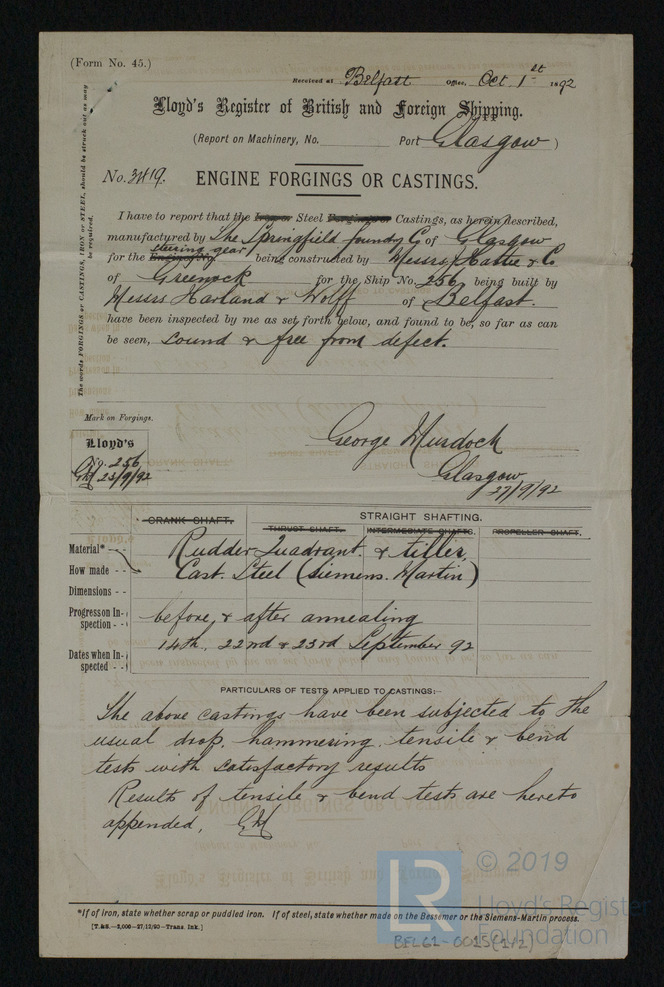 (Form No. 45.)
Received at Belfast Office, Oct 1st 1892
Lloyd's Register of British and Foreign Shipping.
(Report on Machinery, No. Port Glasgow)
No. 3419.
ENGINE FORGINGS OR CASTINGS.
The words FORGINGS or CASTINGS, IRON or STEEL, should be struck out as may be required.
I have to report that the Iron or Steel Forgings or Castings, as herein described,
manufactured by The Springfield foundry Co of Glasgow
steering gear
for the Engines No being constructed by Messrs Hastie & Co
of Greenock for the Ship No. 256 being built by
Messrs Harland & Wolff of Belfast.
have been inspected by me as set forth below, and found to be, so far as can
be seen, sound & free from defect.
Mark on Forgings.
Lloyd's
No. 256
GM 23/9/92
George Murdoch
Glasgow
27/9/92
CRANK SHAFT.
STRAIGHT SHAFTING.
THRUST SHAFT. INTERMEDIATE SHAFTS. PROPELLER SHAFT.
Material* - - Rudder Quadrant & tiller
How made - - Cast Steel (Siemens. Martin)
Dimensions - -
Progress on Inspection - - before, & after annealing
14th, 22nd & 23rd September 92
Dates when Inspected - -
PARTICULARS OF TESTS APPLIED TO CASTINGS:—
The above castings have been subjected to the
usual drop, hammering, tensile & bend
tests with satisfactory results
Results of tensile & bend tests are hereto
appended. GM
*If of iron, state whether scrap or puddled iron. If of steel, state whether made on the Bessemer or the Siemens-Martin process.
[T.&S.—2,000—27/12/90—Trans. Ink.]
BEL61-0025(1/2)
LR
© 2019
Lloyd's Register
Foundation